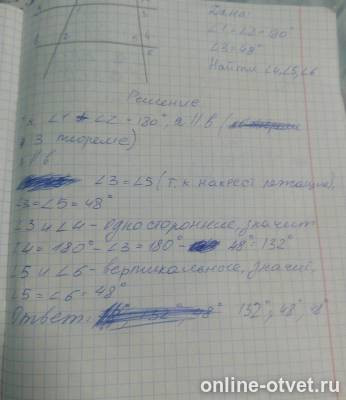 Дано:
∠1 + ∠2 = 180°
∠3 = 48°
Найти ∠4, ∠5, ∠6
Решение
к ∠1 + ∠2 = 180°, a || b (
3 теореме)
|| b
∠3 = ∠5 (т.к. накрест лежащие),
∠3 = ∠5 = 48°
∠3 и ∠4 - односторонние, значит
∠4 = 180° - ∠3 = 180° - 48° = 132°
∠5 и ∠6 - вертикальные, значит,
∠5 = ∠6 = 48°
Ответ: 132°, 48°, 48°
online-otvet.ru